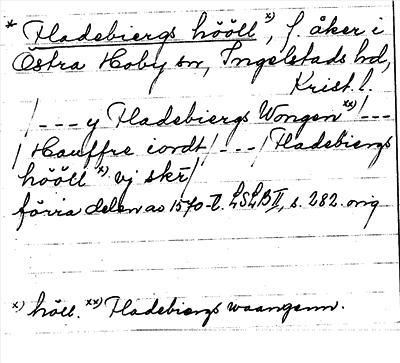 * Fladebiergs hööll x), f. åker i
Östra Hoby sn, Ingelstads hd,
Krist. l.
/ --- y Fladebiergs Wongen xx) / ---
/ Hauffre iordt / --- / Fladebiergs
hööll x) vj skr̄ /
förra delen av 1570-t. LSLB II, s. 282. orig
x) höll. xx) Fladebiergs waangenn.